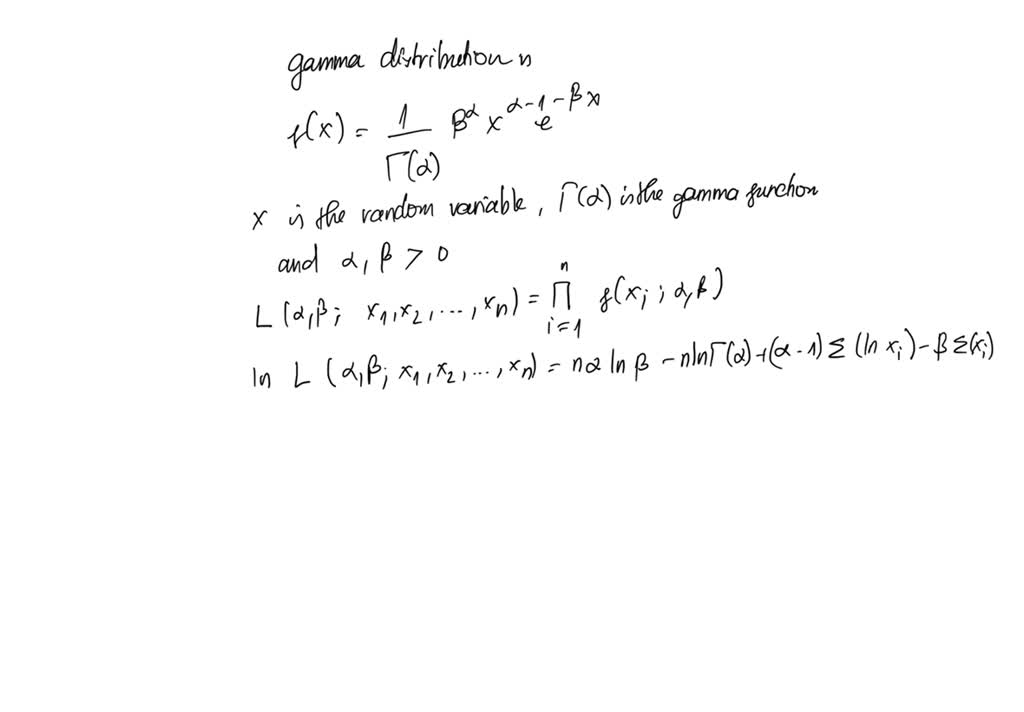 gamma distribution n
f(x) = 1/Γ(α) β^α x^(α-1) e^(-βx)
x is the random variable, Γ(α) is the gamma function
and α, β > 0
L (α,β; x₁,x₂,...,xₙ) = ∏_{i=1}^{n} f(xᵢ; α,β)
ln L (α,β; x₁,x₂,...,xₙ) = nα ln β - n ln Γ(α) + (α-1) Σ (ln xᵢ) - β Σ(xᵢ)